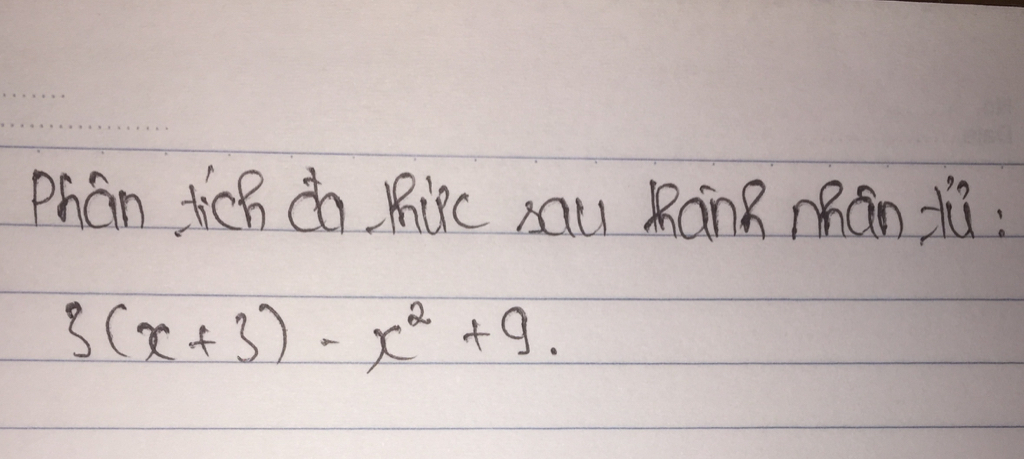 Phân tích đa thức sau thành nhân tử:
3(x+3) - x² + 9.